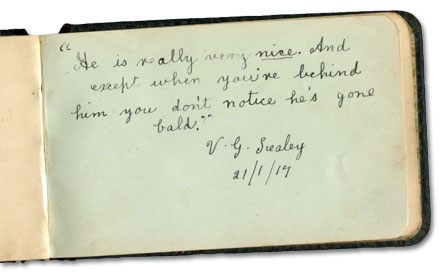 "He is really very nice. And
except when you're behind
him you don't notice he's gone
bald."
V. G. Sealey
21/1/17